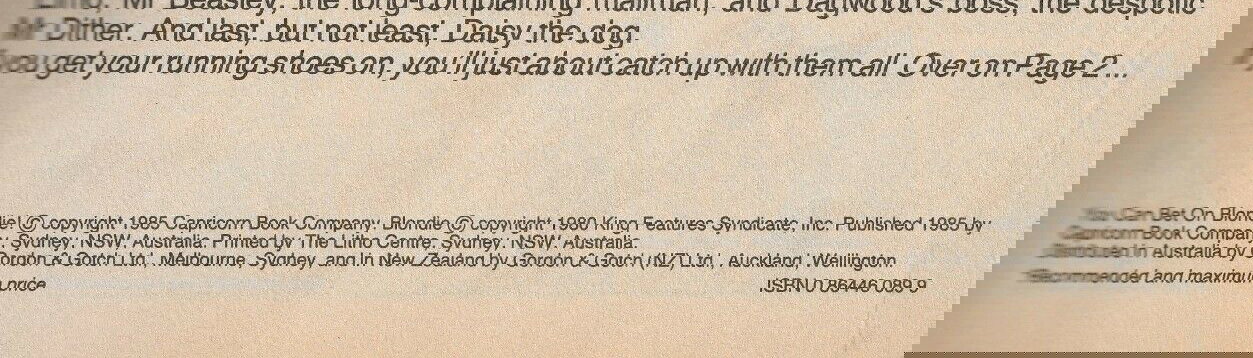 Elmo. Mr Beasley, the long-complaining mailman, and Dagwood's boss, the despotic
Mr Dither. And last, but not least, Daisy the dog.
you get your running shoes on, you'll just about catch up with them all. Over on Page 2...
© copyright 1985 Capricorn Book Company. Blondie © copyright 1980 King Features Syndicate, Inc. Published 1985 by
Sydney, NSW, Australia. Printed by The Litho Centre, Sydney, NSW, Australia.
Gordon & Gotch Ltd., Melbourne, Sydney, and in New Zealand by Gordon & Gotch (NZ) Ltd., Auckland, Wellington.
price
ISBN 0 86446 089 9
You Can Bet On Blond
Capricorn Book Company
in Australia by
Recommended and maximum